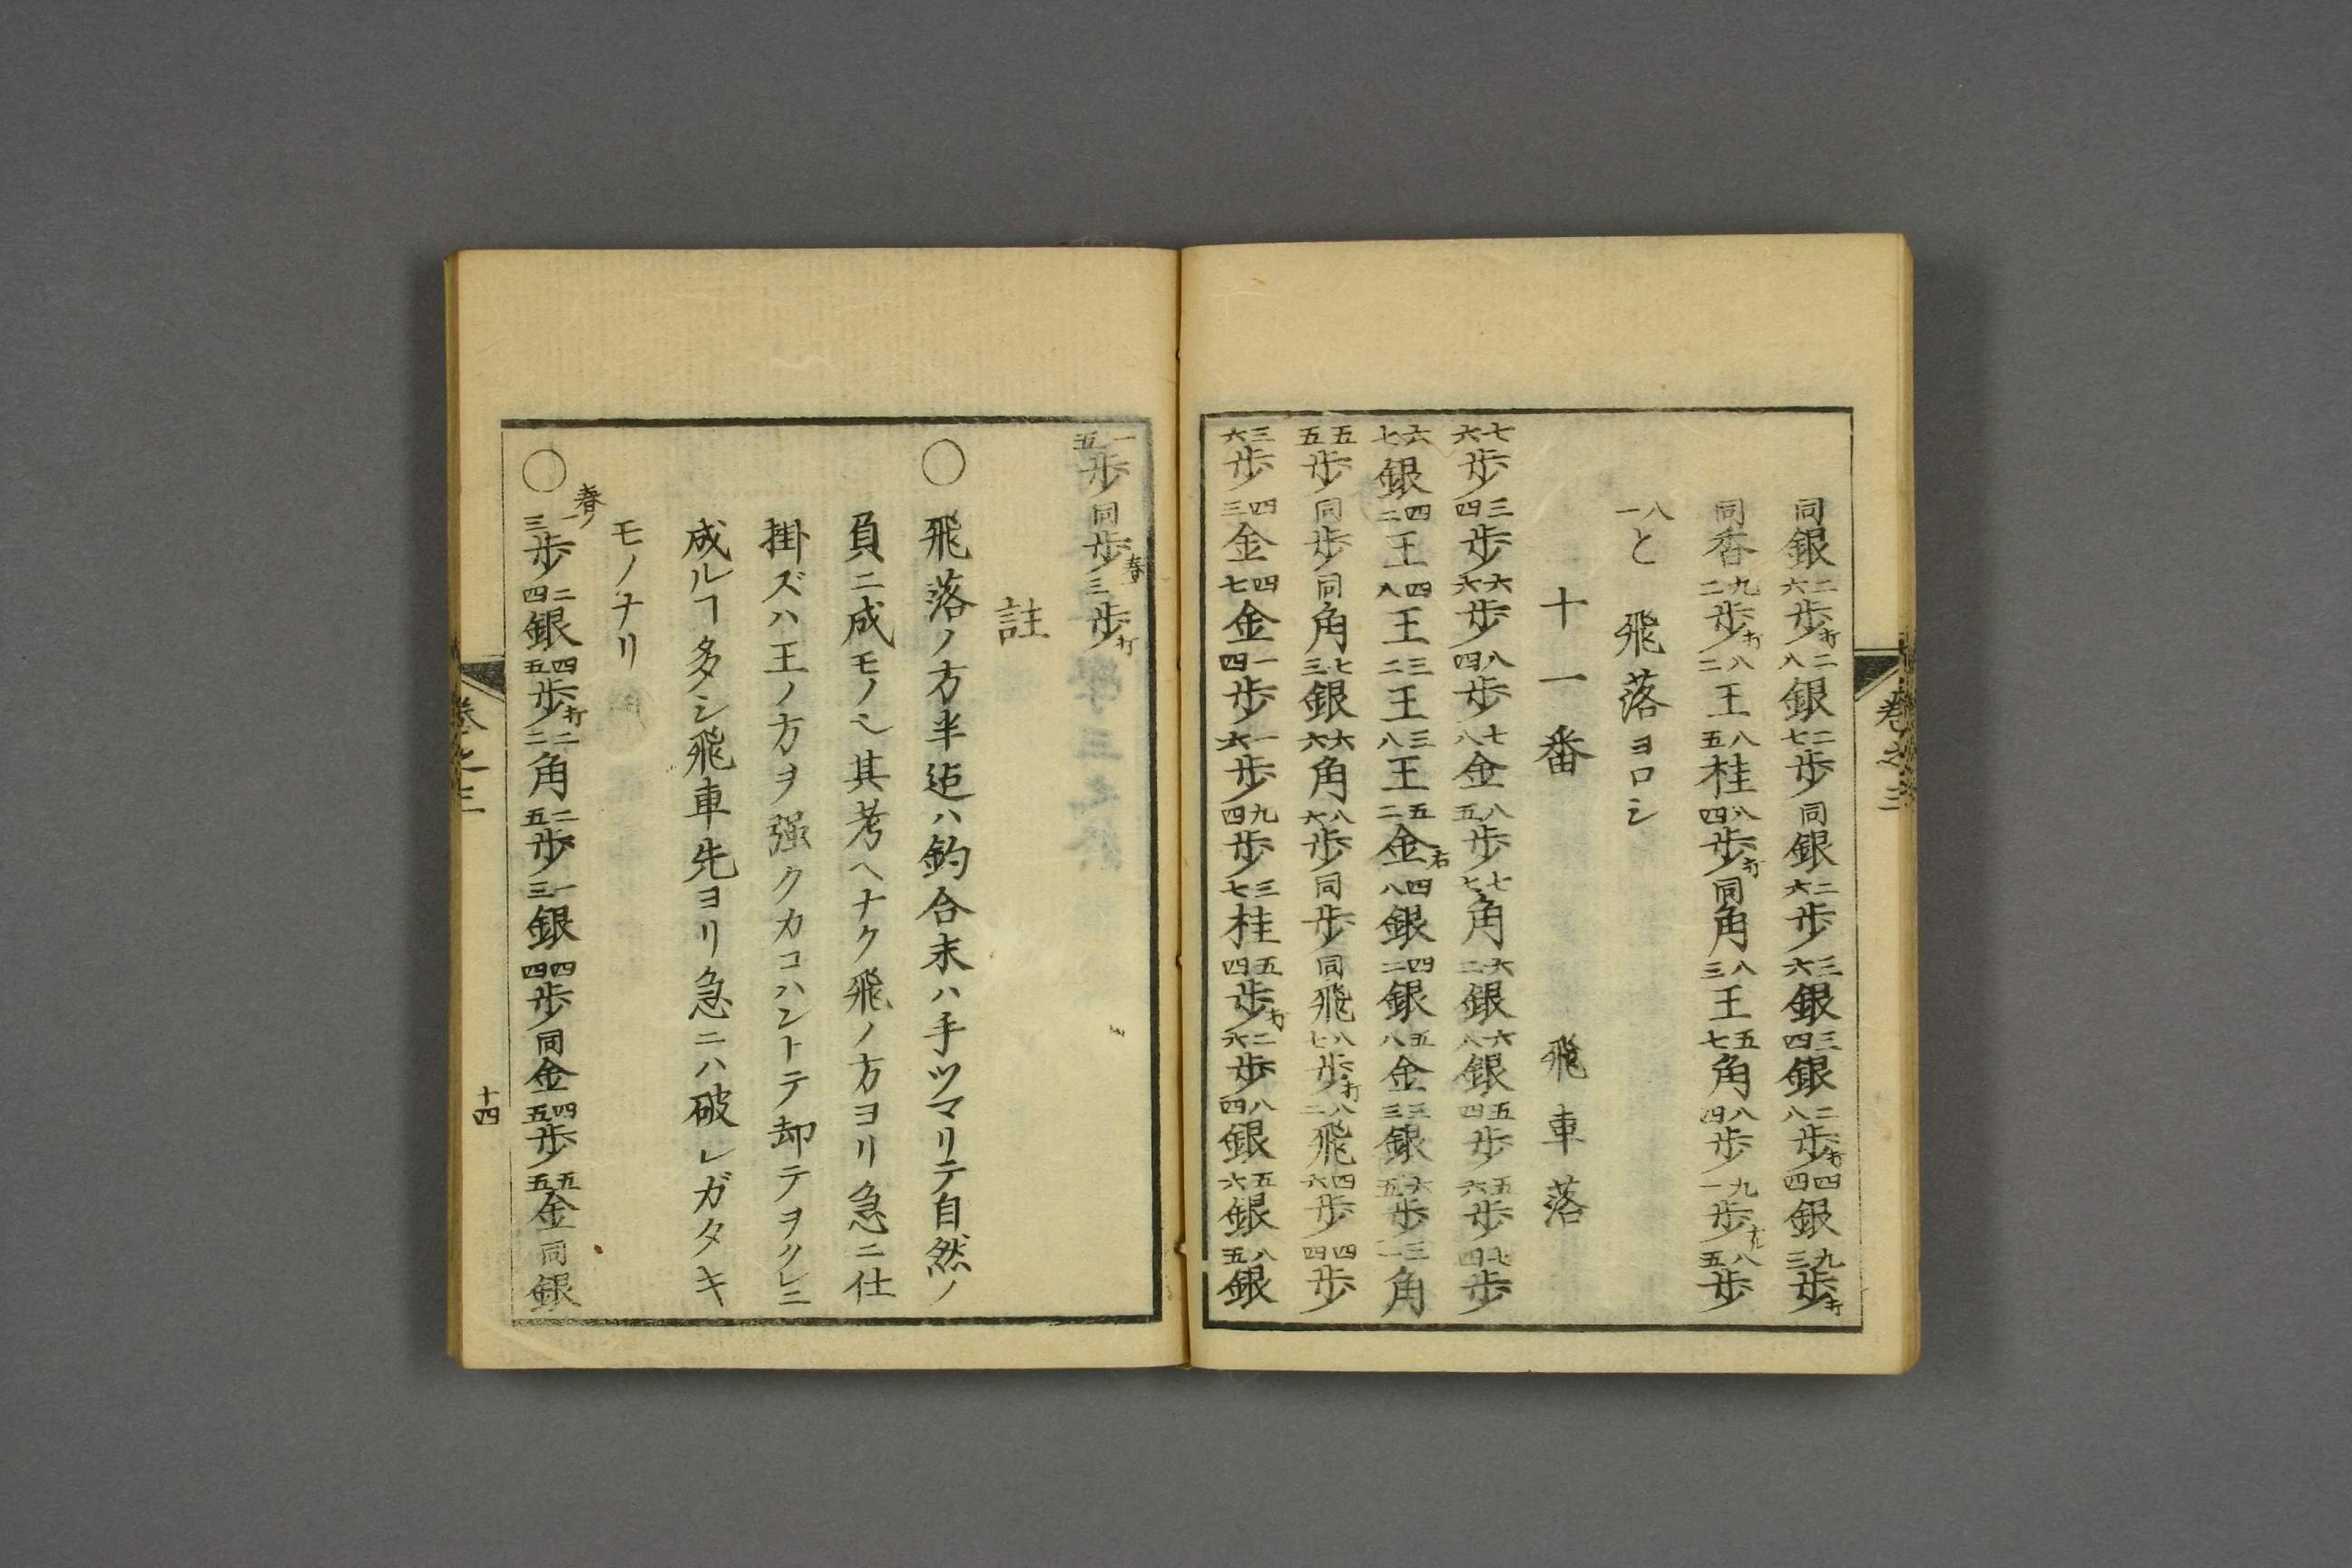 同銀 二六歩打 二八銀 二七歩 同銀 二六歩 三六銀 三四銀 二八歩打 四四銀 九三歩打
同香 九二歩打 八二王 八五桂 八四歩打 同角 八三王 五七角 八四歩 九一歩ナル 八五歩
八一と 飛落ヨロシ
十一番 飛車落
七六歩 三四歩 六六歩 八四歩 七八金 八五歩 七七角 六二銀 六八銀 五四歩 五六歩 七四歩
六七銀 四二王 四八王 三二王 三八王 五二金右 四八銀 四二銀 五八金 三三銀 六五歩 三一角
五五歩 同歩 同角 七三銀 六六角 八六歩 同歩 同飛 八七歩打 八二飛 四六歩 四四歩
三六歩 四三金 四七金 一四歩 一六歩 九四歩 三七桂 五四歩打 二六歩 八四銀 五六銀 八五銀
巻之三
一五歩 同歩 春 一三歩打
註
〇飛落ノ方半迄ハ釣合末ハ手ツマリテ自然ノ
負ニ成モノ也其考ヘナク飛ノ方ヨリ急ニ仕
掛ズハ王ノ方ヲ強クカコハントテ却テヲクレニ
成ルヿ多シ飛車先ヨリ急ニハ破レガタキ
モノナリ
〇春ノ一三歩 二四銀 四五歩打 二二角 二五歩 一三銀 四四歩 同金 四五歩 五五金 同銀
巻之三
十四